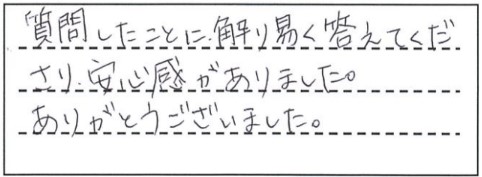 質問したことに、解り易く答えてくだ
さり、安心感がありました。
ありがとうございました。